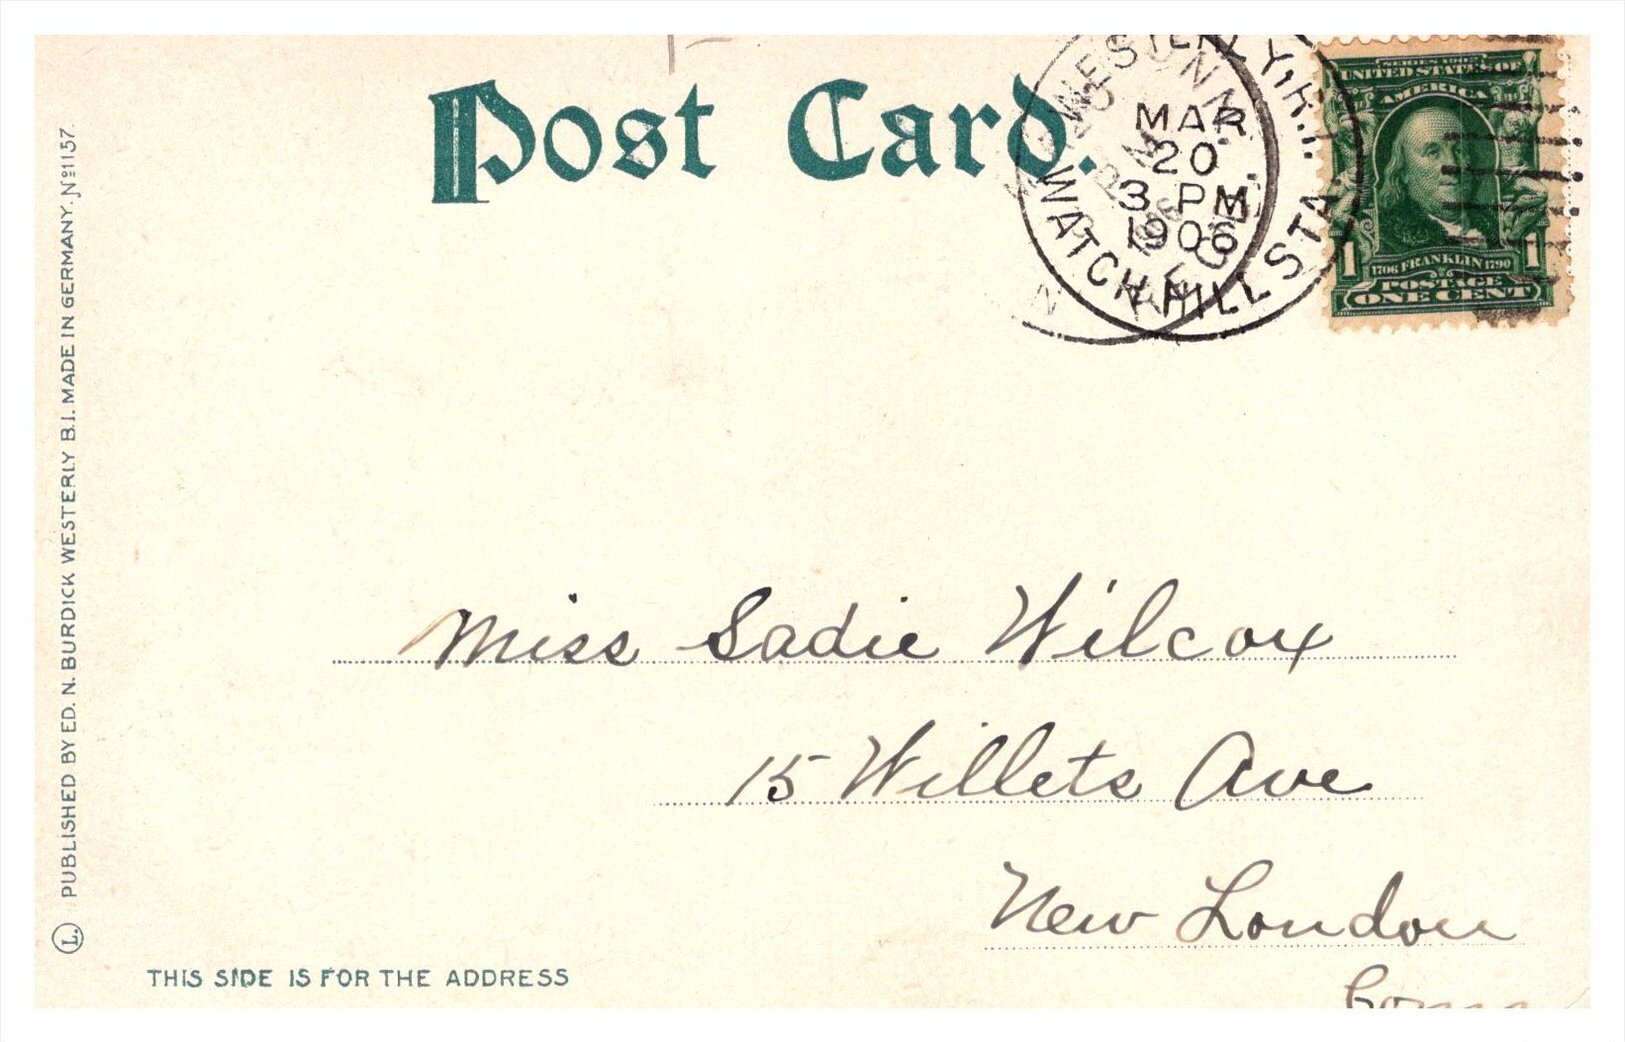 Post Card.
WESTERLY, R.I.
MAR
20
3 PM
1906
WATCH HILL STA.
SERIES 1902
UNITED STATES OF
AMERICA
1 1
1706 FRANKLIN 1790
POSTAGE
ONE CENT
Miss Sadie Wilcox
15 Willets Ave
New London
Conn
PUBLISHED BY ED. N. BURDICK WESTERLY B.I. MADE IN GERMANY. No 1157.
L.
THIS SIDE IS FOR THE ADDRESS